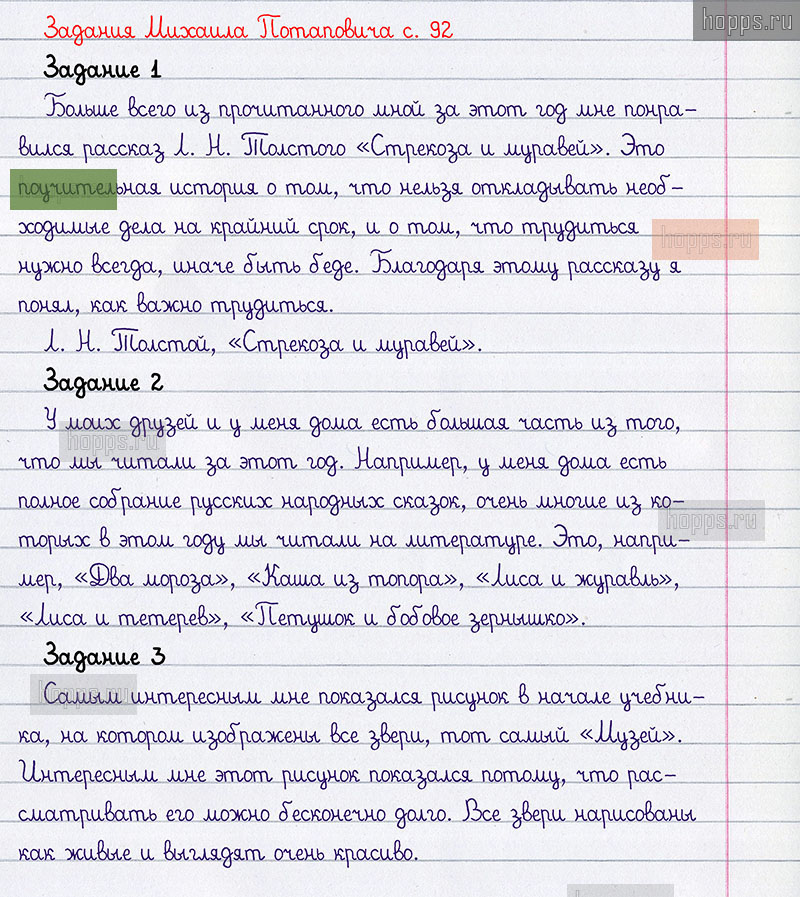 Задания Михаила Потаповича с. 92
hopps.ru
Задание 1
Больше всего из прочитанного мной за этот год мне понра-
вился рассказ Л. Н. Толстого «Стрекоза и муравей». Это
поучительная история о том, что нельзя откладывать необ-
ходимые дела на крайний срок, и о том, что трудиться
hopps.ru
нужно всегда, иначе быть беде. Благодаря этому рассказу я
понял, как важно трудиться.
Л. Н. Толстой, «Стрекоза и муравей».
Задание 2
У моих друзей и у меня дома есть большая часть из того,
hopps.ru
что мы читали за этот год. Например, у меня дома есть
полное собрание русских народных сказок, очень многие из ко-
hopps.ru
торых в этом году мы читали на литературе. Это, напри-
мер, «Два мороза», «Каша из топора», «Лиса и журавль»,
«Лиса и тетерев», «Петушок и бобовое зернышко».
Задание 3
hopps.ru
Самым интересным мне показался рисунок в начале учебни-
ка, на котором изображены все звери, тот самый «Музей».
Интересным мне этот рисунок показался потому, что рас-
сматривать его можно бесконечно долго. Все звери нарисованы
как живые и выглядят очень красиво.